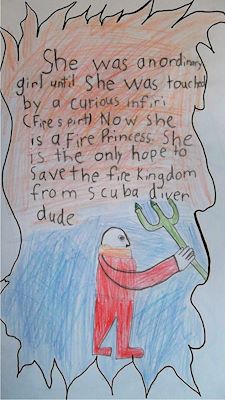 She was an ordinary
girl until She was touched
by a curious infiri
(Fire spirt) Now she
is a Fire Princess. She
is the only hope to
save the fire Kingdom
from scuba diver
dude